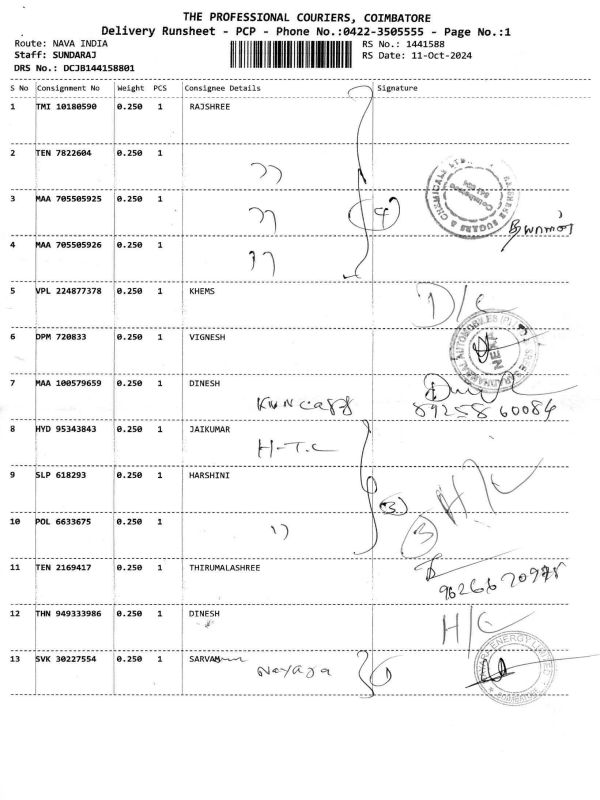 THE PROFESSIONAL COURIERS, COIMBATORE
Delivery Runsheet - PCP - Phone No.:0422-3505555 - Page No.:1
Route: NAVA INDIA RS No.: 1441588
Staff: SUNDARAJ RS Date: 11-Oct-2024
DRS No.: DCJB144158801
S No Consignment No Weight PCS Consignee Details Signature
1 TMI 10180590 0.250 1 RAJSHREE
2 TEN 7822604 0.250 1
"
3 MAA 705505925 0.250 1
" (4)
4 MAA 705505926 0.250 1
"
5 VPL 224877378 0.250 1 KHEMS D/C
6 DPM 720833 0.250 1 VIGNESH
7 MAA 100579659 0.250 1 DINESH
89258 60084
8 HYD 95343843 0.250 1 JAIKUMAR
H-T.C
9 SLP 618293 0.250 1 HARSHINI
(3) H/C
10 POL 6633675 0.250 1
" 3
11 TEN 2169417 0.250 1 THIRUMALASHREE
12 THN 949333986 0.250 1 DINESH H/C
13 SVK 30227554 0.250 1
Nayara